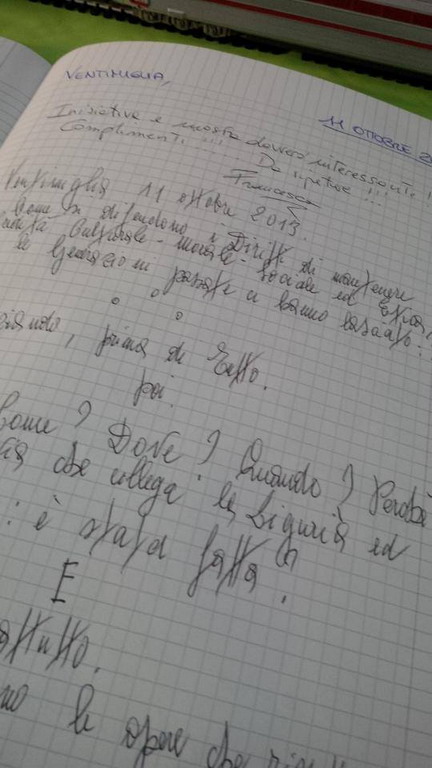 VENTIMIGLIA,
11 OTTOBRE
Iniziative e mostra davvero interessanti !
Complimenti !!! Da ripetere !!!
Francesca
Ventimiglia 11 ottobre 2013.
Come si difendono i Diritti di
culturale - morale - sociale ed
le Generazioni passate ci hanno lasciato
prima di Tutto.
poi.
Come ? DOVE ? Quando ? Perchè
che collega la Liguria ed
: è stata fatta
E
no le opere che